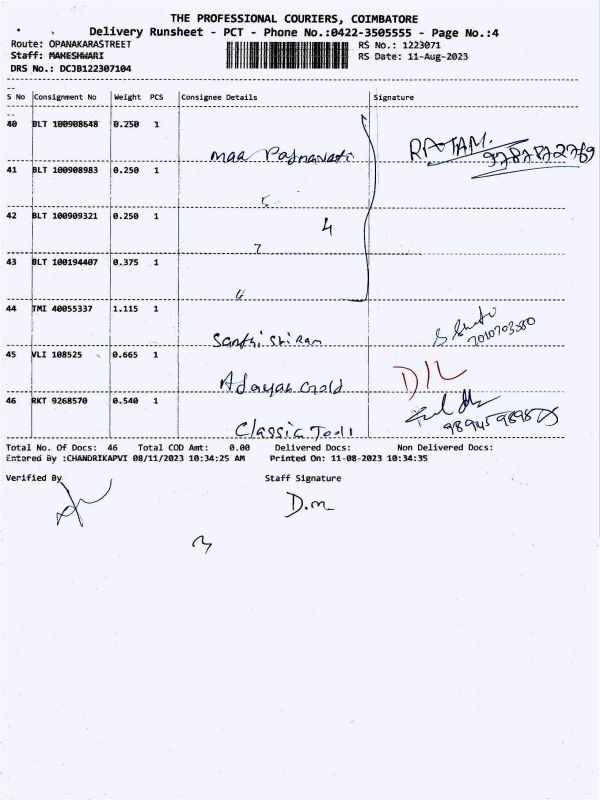 THE PROFESSIONAL COURIERS, COIMBATORE
Delivery Runsheet - PCT - Phone No.:0422-3505555 - Page No.:4
Route: OPANAKARASTREET RS No.: 1223071
Staff: MAHESHWARI RS Date: 11-Aug-2023
DRS No.: DCJB122307104
S No Consignment No Weight PCS Consignee Details Signature
40 BLT 100908648 0.250 1
maa Padmavati RATAM.
9787872769
41 BLT 100908983 0.250 1
42 BLT 100909321 0.250 1
4
7
43 BLT 100194407 0.375 1
44 TMI 40055337 1.115 1
7010703580
45 VLI 108525 0.665 1
D/L
46 RKT 9268570 0.540 1
Classic Tools
Total No. Of Docs: 46 Total COD Amt: 0.00 Delivered Docs: Non Delivered Docs:
Entered By :CHANDRIKAPVI 08/11/2023 10:34:25 AM Printed On: 11-08-2023 10:34:35
Verified By Staff Signature
D.m
3